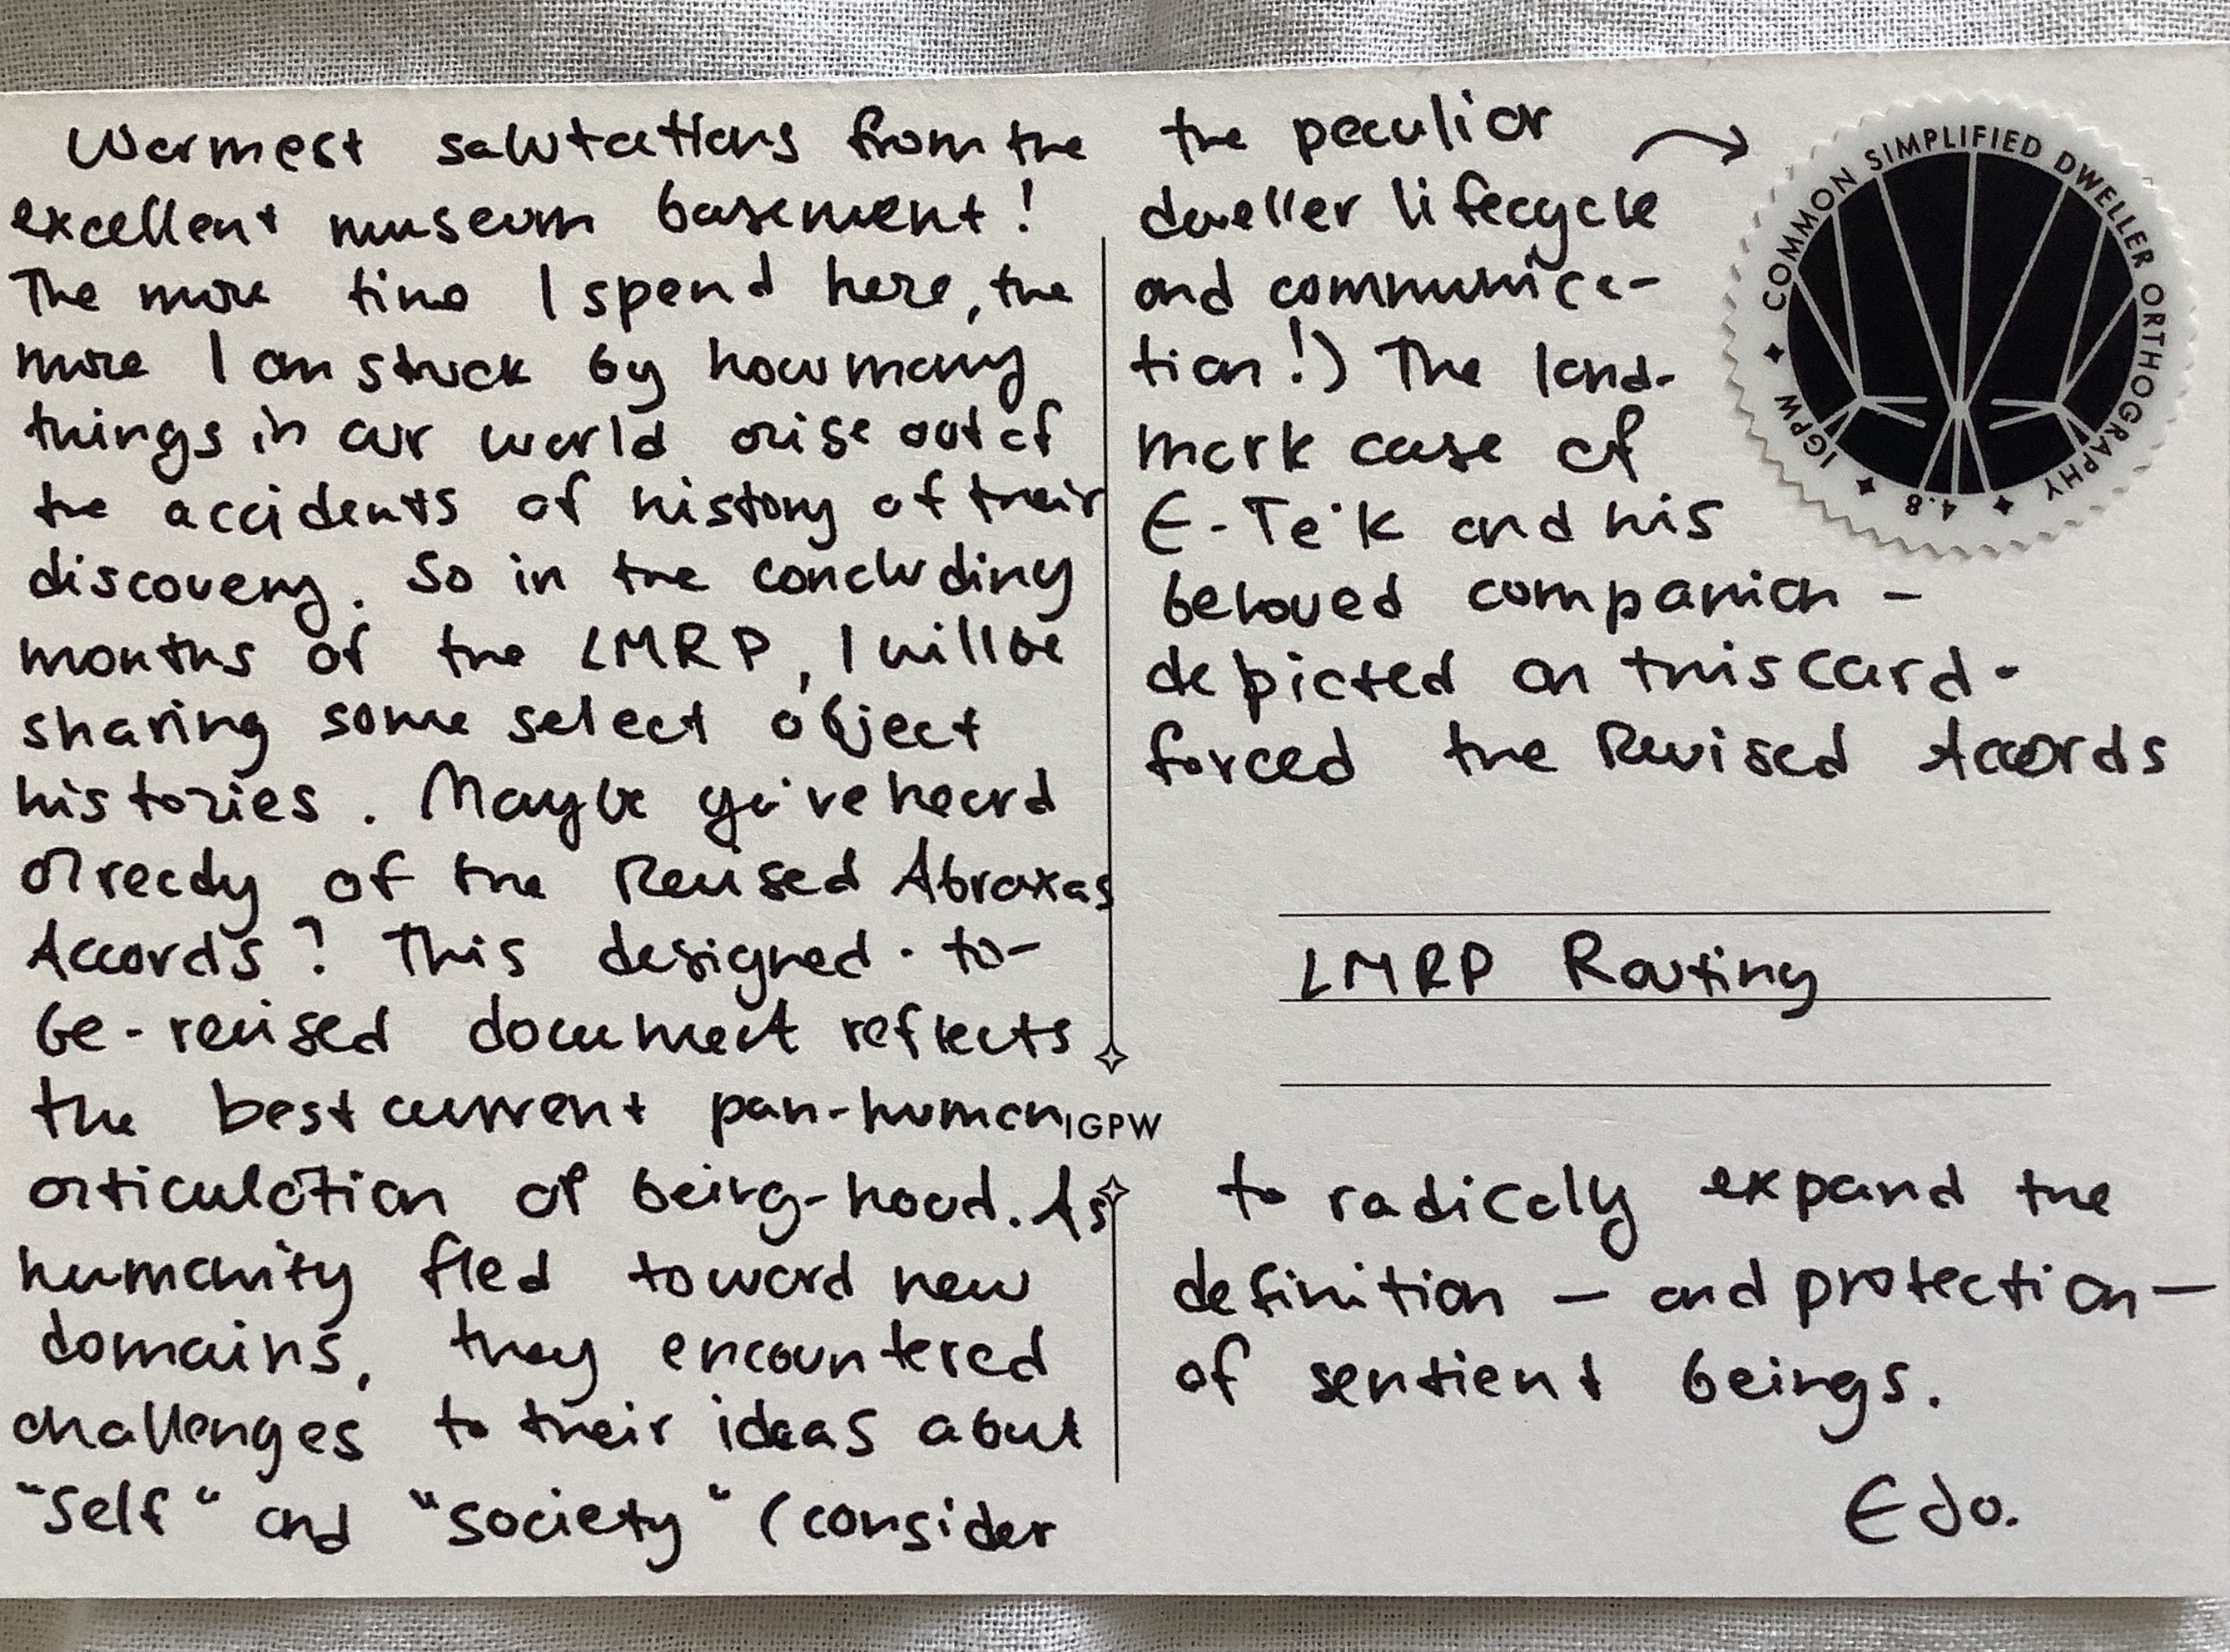 Warmest salutations from the
excellent museum basement!
The more time I spend here, the
more I am struck by how many
things in our world arise out of
the accidents of history of their
discovery. So in the concluding
months of the LMRP, I will be
sharing some select object
histories. Maybe you've heard
already of the Revised Abraxas
Accords? This designed-to-
be-revised document reflects
the best current pan-human
articulation of being-hood. As
humanity fled toward new
domains, they encountered
challenges to their ideas about
"Self" and "society" (consider
the peculiar
dweller lifecycle
and communica-
tion!) The land-
mark case of
E-Te'k and his
beloved companion -
depicted on this card -
forced the Revised Accords
LMRP Routing
to radically expand the
definition — and protection —
of sentient beings.
Edo.
IGPW
COMMON SIMPLIFIED DWELLER ORTHOGRAPHY ✦ 4.8 ✦ IGPW ✦